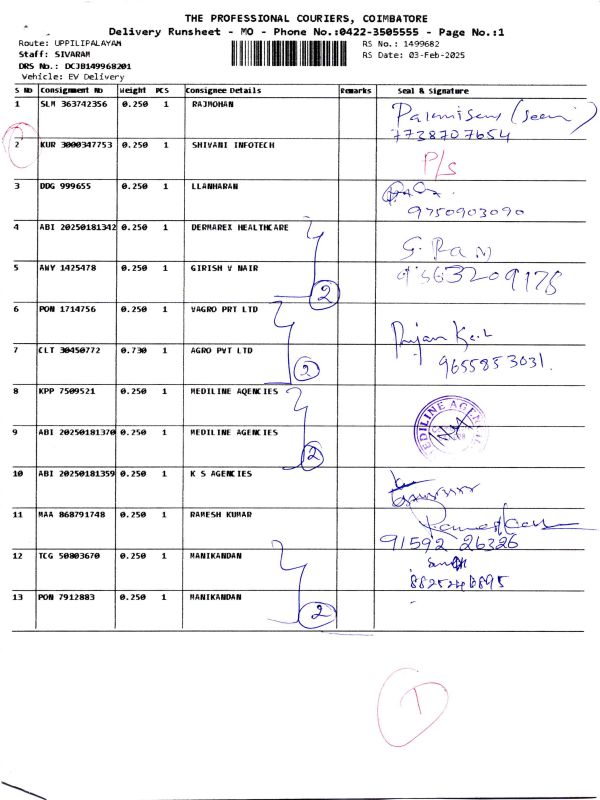 THE PROFESSIONAL COURIERS, COIMBATORE
Delivery Runsheet - MO - Phone No.:0422-3505555 - Page No.:1
Route: UPPILIPALAYAM
RS No.: 1499682
Staff: SIVARAM
RS Date: 03-Feb-2025
DRS No.: DCJB149968201
Vehicle: EV Delivery
S No Consignment No Weight PCS Consignee Details Remarks Seal & Signature
1 SLM 363742356 0.250 1 RAJMOHAN
7738707654
2 KUR 3000347753 0.250 1 SHIVANI INFOTECH P/S
3 DDG 999655 0.250 1 LLANHARAN
9750903090
4 ABI 20250181342 0.250 1 DERMAREX HEALTHCARE
5 AWY 1425478 0.250 1 GIRISH V NAIR
2
6 PON 1714756 0.250 1 VAGRO PRT LTD
7 CLT 30450772 0.730 1 AGRO PVT LTD
2 9655853031.
8 KPP 7509521 0.250 1 MEDILINE AQENCIES
9 ABI 20250181370 0.250 MEDILINE AGENCIES
2
10 ABI 20250181359 0.250 1 K S AGENCIES
11 MAA 868791748 0.250 1 RAMESH KUMAR
91592 26326
12 TCG 50803670 0.250 1 MANIKANDAN
13 PON 7912883 0.250 1 MANIKANDAN
2
1